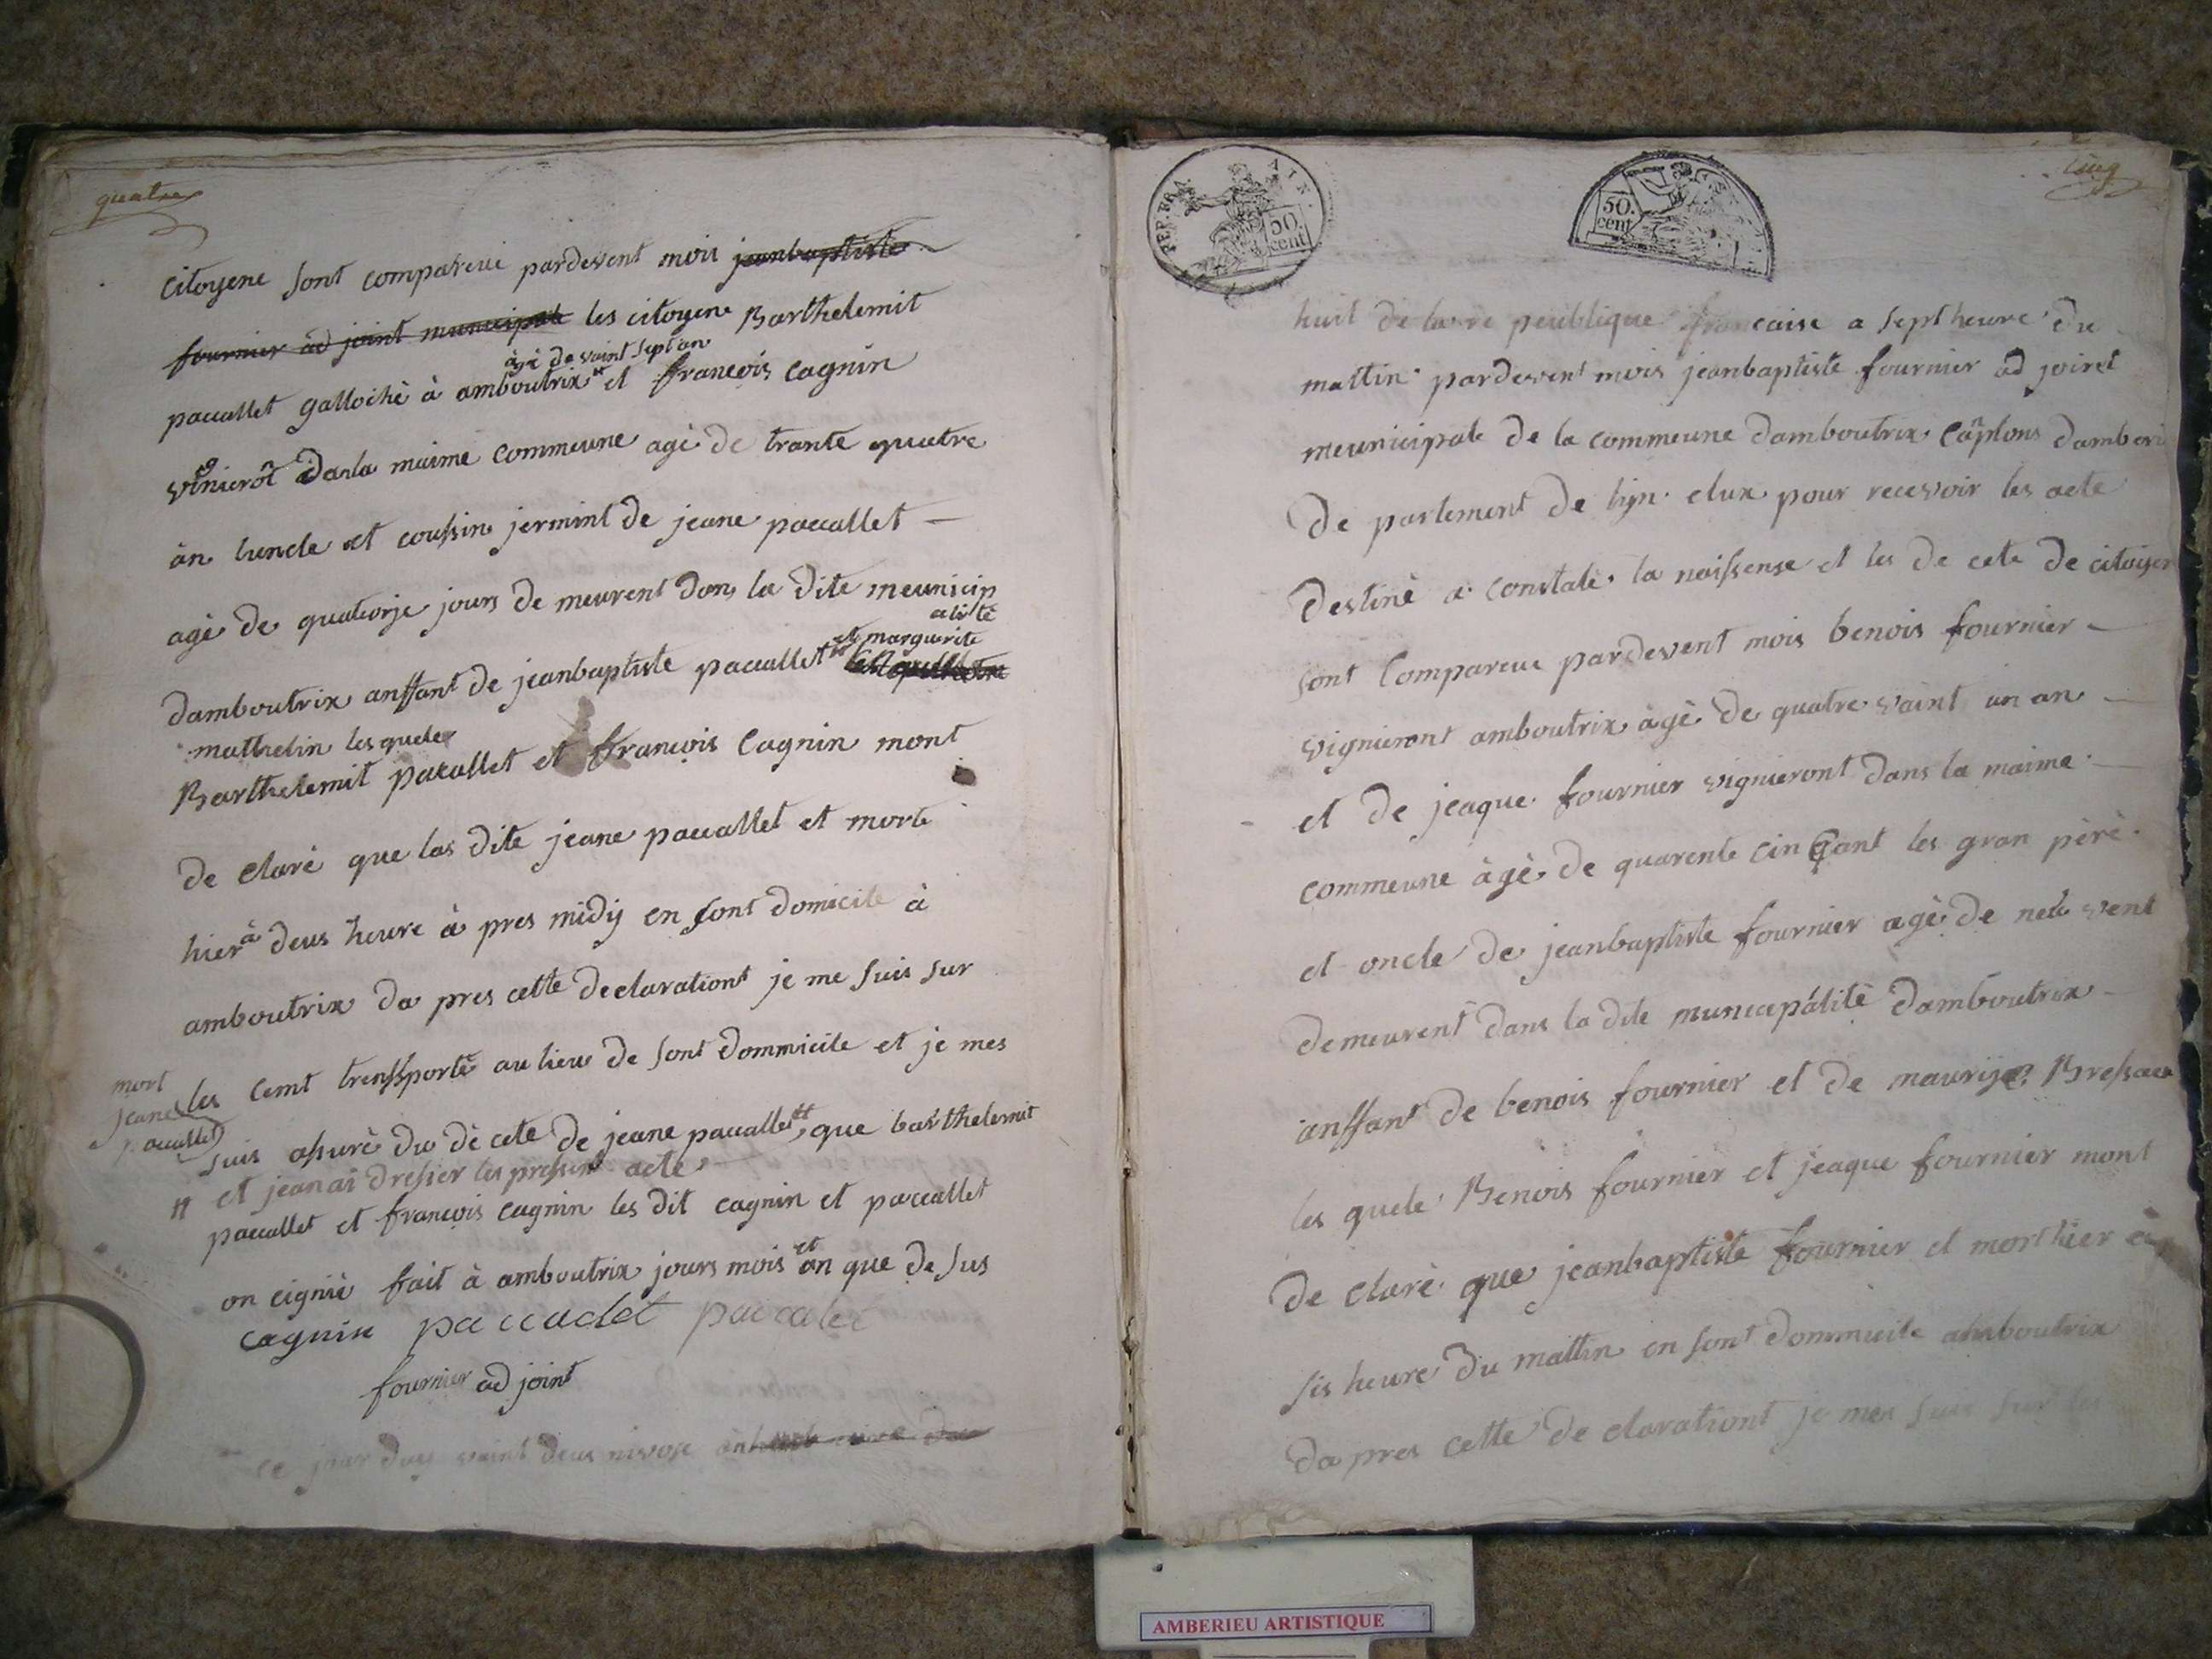 quatre
citoyene sont compareue pardevent mois jeanbaptiste
fournier ad joint municipale les citoyene Barthelemit
âgé de vaint sept an
paccallet galloché à amboutrix et francois cagnin
vinieront dans la maime commeune agé de trante quatre
ân luncle et coussin jermint de jeane paccallet
agé de quatorje jours de meurent dans la dite meunicip
alité
et marguerite
damboutrix anffant de jeanbaptiste paccallet
mathelin les quele
Barthelemit pacallet et francois Cagnin mont
de claré que las dite jeane paccallet et morte
hier à deus heure à pres midy en sont domicile à
amboutrix da pres cette declarationt je me suis sur
mort
jeane
paccallet
les cemt trensporté au lieu de sont dommicile et je mes
suis assuré du dé cete de jeane paccallet que barthelemit
et jeanai dressier les present acte
paccallet et francois cagnin les dit cagnin et paccallet
on cignié fait à amboutrix jours mois et an que de sus
cagnin paccadet paccalet
fournier ad joint
ce jour duy vaint deus nivose
cinq
REP. FRA. AIN.
50. cent
50. cent
huit de la re peublique francaise a sept heure du
mattin pardevent mois jeanbaptiste fournier ad joint
meunicipale de la commeune damboutrix Cantons damberi
De partement de lyn elux pour recevoir les acte
Destiné a constaté la naissense et les de cete de citoyen
sont Compareue pardevent mois benois fournier
vignieront amboutrix âgé de quatre vaint un an
et de jeaque fournier vignieront dans la maime
commeune âgé de quarente cin qant les gran péré
et oncle de jeanbaptiste fournier agé de neb vent
demeurent dans la dite municipalité damboutrix
anffant de benois fournier et de Bressae
les quele Benois fournier et jeaque fournier mont
de claré que jeanbaptiste fournier et mort hier à
sis heure du mattin en sont dommicile amboutrix
da pres cette de clarationt je mes suis sur les
AMBERIEU ARTISTIQUE